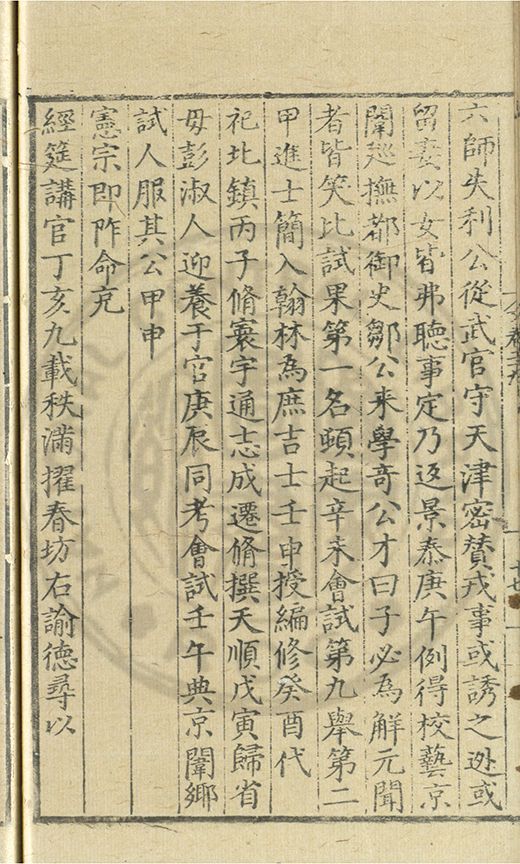 六師失利公從武官守天津密賛戎事或誘之迯或
留妻以女皆弗聽事定乃返景泰庚午例得校藝京
闈廵撫都御史鄒公来學竒公才曰子必為解元聞
者皆笑比試果第一名頓起辛未會試第九舉第二
甲進士簡入翰林為庶吉士壬申授編修癸酉代
祀北鎮丙子脩寰宇通志成遷脩撰天順戊寅歸省
母彭淑人迎養于官庚辰同考會試壬午典京闈鄉
試人服其公甲申
憲宗即阼命充
經筵講官丁亥九載秩滿擢春坊右諭德尋以